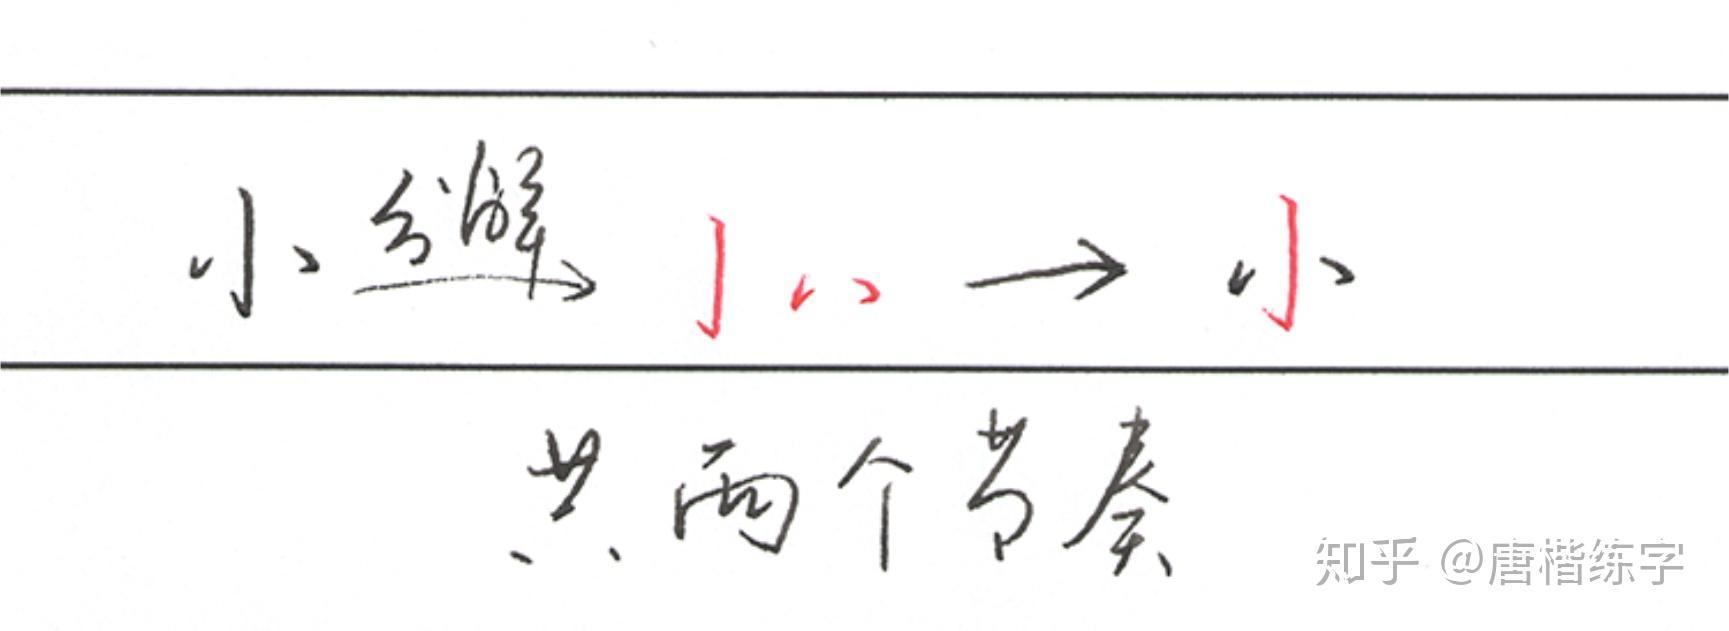 小 分解 → 亅 八 → 小
共两个节奏
知乎 @唐楷练字